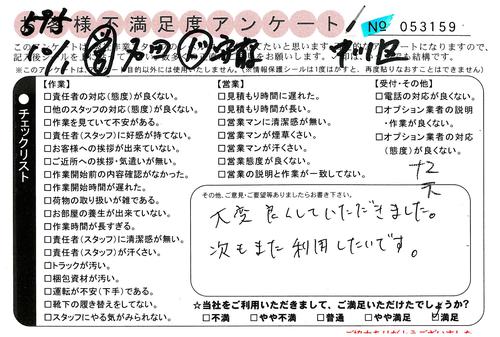 お客様不満足度アンケート
No 053159
【作業】
□責任者の対応(態度)が良くない。
□他のスタッフの対応(態度)が良くない。
□作業を見ていて不安がある。
□責任者(スタッフ)に好感が持てない。
□お客様への挨拶が出来ていない。
□ご近所への挨拶・気遣いが無い。
□作業開始前の内容確認がなかった。
□作業開始時間が遅れた。
□荷物の取り扱いが雑である。
□お部屋の養生が出来ていない。
□作業時間が長すぎる。
□責任者(スタッフ)に清潔感が無い。
□責任者(スタッフ)が汗くさい。
□トラックが汚い。
□梱包資材が汚い。
□運転が不安(下手)である。
□靴下の履き替えをしてない。
□スタッフにやる気がみられない。
●チェックリスト
【営業】
□見積もり時間に遅れた。
□見積もり時間が長い。
□営業マンに清潔感が無い。
□営業マンが煙草くさい。
□営業マンが汗くさい。
□営業態度が良くない。
□営業の説明と作業が一致してない。
【受付・その他】
□電話の対応が良くない。
□オプション業者の説明
・作業が良くない。
□オプション業者の対応
(態度)が良くない。
その他、ご意見・ご要望等ありましたらお書き下さい。
大変良くしていただきました。
次もまた利用したいです。
☆当社をご利用いただきまして、ご満足いただけたでしょうか?
□不満 □やや不満 □普通 □やや満足 ☑満足